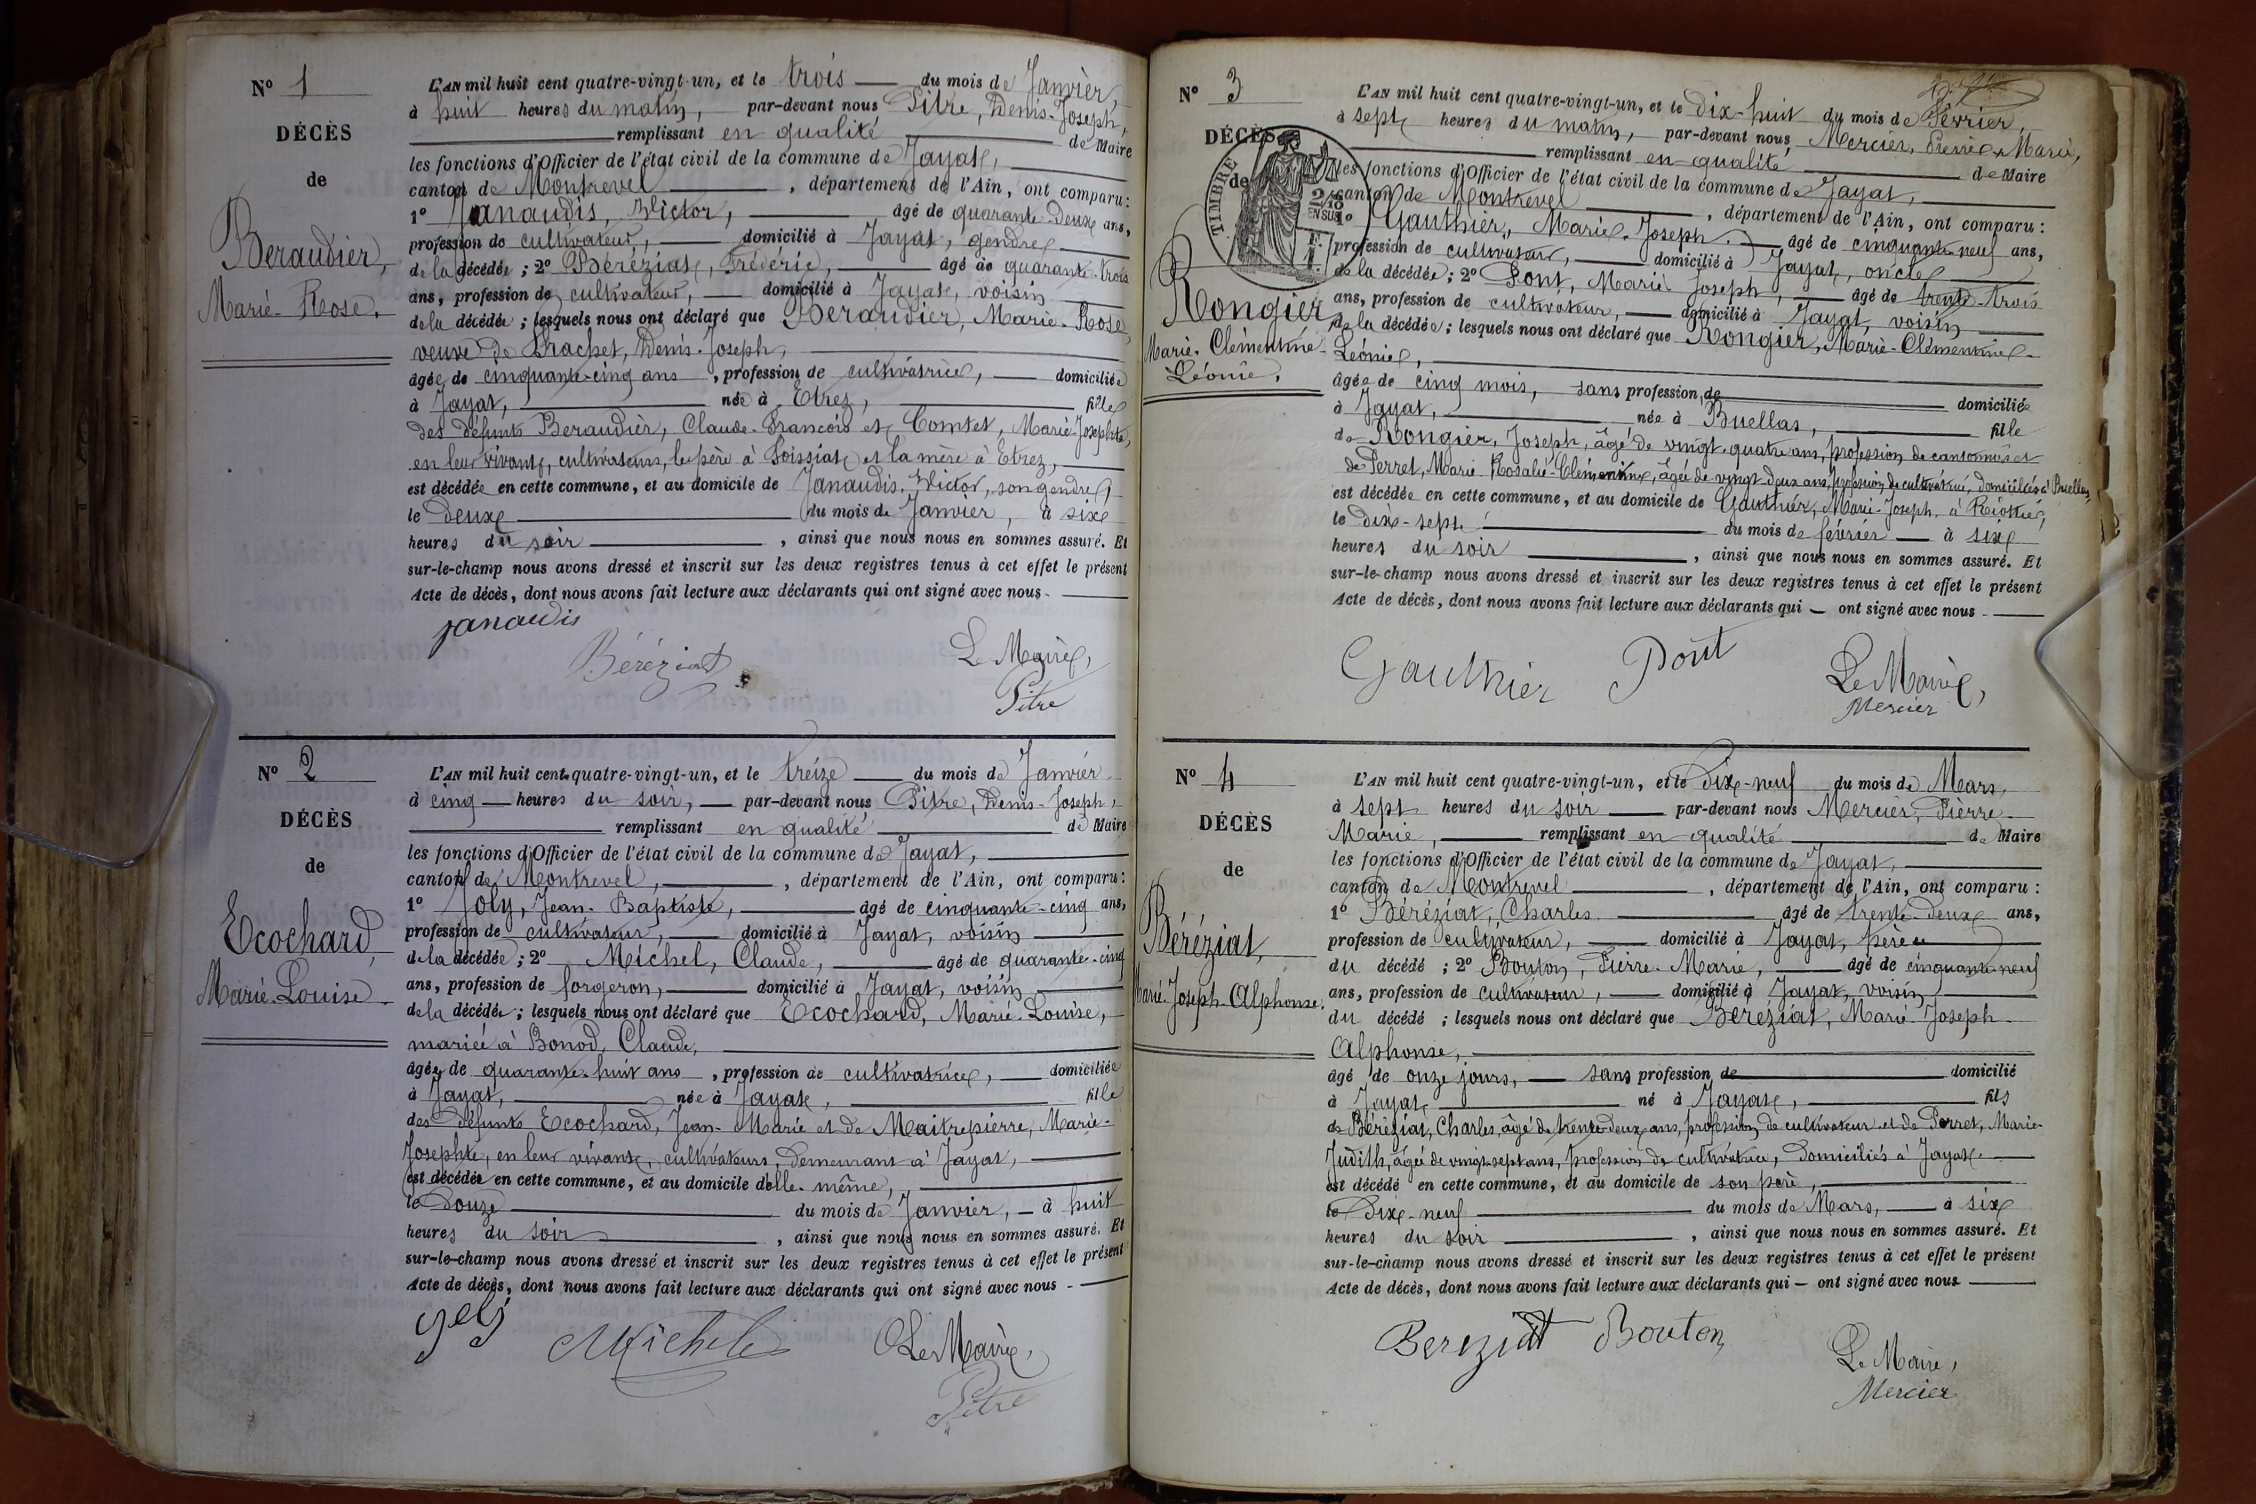 N° 1
DÉCÈS
de
Beraudier,
Marie-Rose.
L'AN mil huit cent quatre-vingt-un, et le trois du mois de Janvier,
à huit heures du matin, par-devant nous Pitre, Denis-Joseph,
remplissant en qualité de Maire
les fonctions d'Officier de l'état civil de la commune de Jayat,
canton de Montrevel, département de l'Ain, ont comparu:
1° Janaudis, Victor, âgé de quarante-deux ans,
profession de cultivateur, domicilié à Jayat, gendre
de la décédée; 2° Béréziat, Frédéric, âgé de quarante-trois
ans, profession de cultivateur, domicilié à Jayat, voisin
de la décédée; lesquels nous ont déclaré que Beraudier, Marie-Rose
veuve de Brachet, Denis-Joseph,
âgée de cinquante-cinq ans, profession de cultivatrice, domiciliée
à Jayat, née à Etrez, fille
des défunts Beraudier, Claude-François et Comtet, Marie-Josephte,
en leur vivant, cultivateurs, le père à Foissiat et la mère à Etrez,
est décédée en cette commune, et au domicile de Janaudis, Victor, son gendre,
le deux du mois de Janvier, à six
heures du soir, ainsi que nous nous en sommes assuré. Et
sur-le-champ nous avons dressé et inscrit sur les deux registres tenus à cet effet le présent
Acte de décès, dont nous avons fait lecture aux déclarants qui ont signé avec nous.
janaudis
Béréziat
Le Maire,
Pitre
N° 2
DÉCÈS
de
Ecochard,
Marie-Louise
L'AN mil huit cent quatre-vingt-un, et le treize du mois de Janvier
à cinq heures du soir, par-devant nous Pitre, Denis-Joseph,
remplissant en qualité de Maire
les fonctions d'Officier de l'état civil de la commune de Jayat,
canton de Montrevel, département de l'Ain, ont comparu:
1° Joly, Jean-Baptiste, âgé de cinquante-cinq ans,
profession de cultivateur, domicilié à Jayat, voisin
de la décédée; 2° Michel, Claude, âgé de quarante-cinq
ans, profession de forgeron, domicilié à Jayat, voisin
de la décédée; lesquels nous ont déclaré que Ecochard, Marie-Louise,
mariée à Bonod, Claude,
âgée de quarante-huit ans, profession de cultivatrice, domiciliée
à Jayat, née à Jayat, fille
des défunts Ecochard, Jean-Marie et de Maitrepierre, Marie-
Josephte, en leur vivant, cultivateurs, demeurant à Jayat,
est décédée en cette commune, et au domicile d'elle-même,
le douze du mois de Janvier, à huit
heures du soir, ainsi que nous nous en sommes assuré. Et
sur-le-champ nous avons dressé et inscrit sur les deux registres tenus à cet effet le présent
Acte de décès, dont nous avons fait lecture aux déclarants qui ont signé avec nous
Michel
Le Maire,
Pitre
N° 3
DÉCÈS
de
TIMBRE
2/10
EN SUS
Rongier,
Marie-Clémentine-
Léonie,
L'AN mil huit cent quatre-vingt-un, et le dix-huit du mois de Février,
à sept heures du matin, par-devant nous Mercier, Pierre-Marie,
remplissant en qualité de Maire
les fonctions d'Officier de l'état civil de la commune de Jayat,
canton de Montrevel, département de l'Ain, ont comparu:
1° Gauthier, Marie-Joseph, âgé de cinquante-neuf ans,
profession de cultivateur, domicilié à Jayat, oncle
de la décédée; 2° Pont, Marie Joseph, âgé de trente-trois
ans, profession de cultivateur, domicilié à Jayat, voisin
de la décédée; lesquels nous ont déclaré que Rongier, Marie-Clémentine-
Léonie,
âgée de cinq mois, sans profession de domiciliée
à Jayat, née à Buellas, fille
de Rongier, Joseph, âgé de vingt-quatre ans, profession de cantonnier et
de Perret, Marie-Rosalie-Clémentine, âgée de vingt-deux ans, profession de cultivatrice, domiciliés à Buellas,
est décédée en cette commune, et au domicile de Gauthier, Marie-Joseph, à
le dix-sept du mois de février à six
heures du soir, ainsi que nous nous en sommes assuré. Et
sur-le-champ nous avons dressé et inscrit sur les deux registres tenus à cet effet le présent
Acte de décès, dont nous avons fait lecture aux déclarants qui ont signé avec nous
Gauthier
Pont
Le Maire,
Mercier
N° 4
DÉCÈS
de
Béréziat,
Marie-Joseph-Alphonse.
L'AN mil huit cent quatre-vingt-un, et le dix-neuf du mois de Mars,
à sept heures du soir par-devant nous Mercier, Pierre-
Marie, remplissant en qualité de Maire
les fonctions d'Officier de l'état civil de la commune de Jayat,
canton de Montrevel, département de l'Ain, ont comparu:
1° Béréziat, Charles âgé de trente-deux ans,
profession de cultivateur, domicilié à Jayat, père
du décédé; 2° Bouton, Pierre-Marie, âgé de cinquante-neuf
ans, profession de cultivateur, domicilié à Jayat, voisin
du décédé; lesquels nous ont déclaré que Béréziat, Marie-Joseph-
Alphonse,
âgé de onze jours, sans profession de domicilié
à Jayat, né à Jayat, fils
de Béréziat, Charles, âgé de trente-deux ans, profession de cultivateur et de Perret, Marie-
Judith, âgée de vingt-sept ans, profession de cultivatrice, domiciliés à Jayat.
est décédé en cette commune, et au domicile de son père,
le dix-neuf du mois de Mars, à six
heures du soir, ainsi que nous nous en sommes assuré. Et
sur-le-champ nous avons dressé et inscrit sur les deux registres tenus à cet effet le présent
Acte de décès, dont nous avons fait lecture aux déclarants qui ont signé avec nous
Bereziat
Bouton
Le Maire,
Mercier